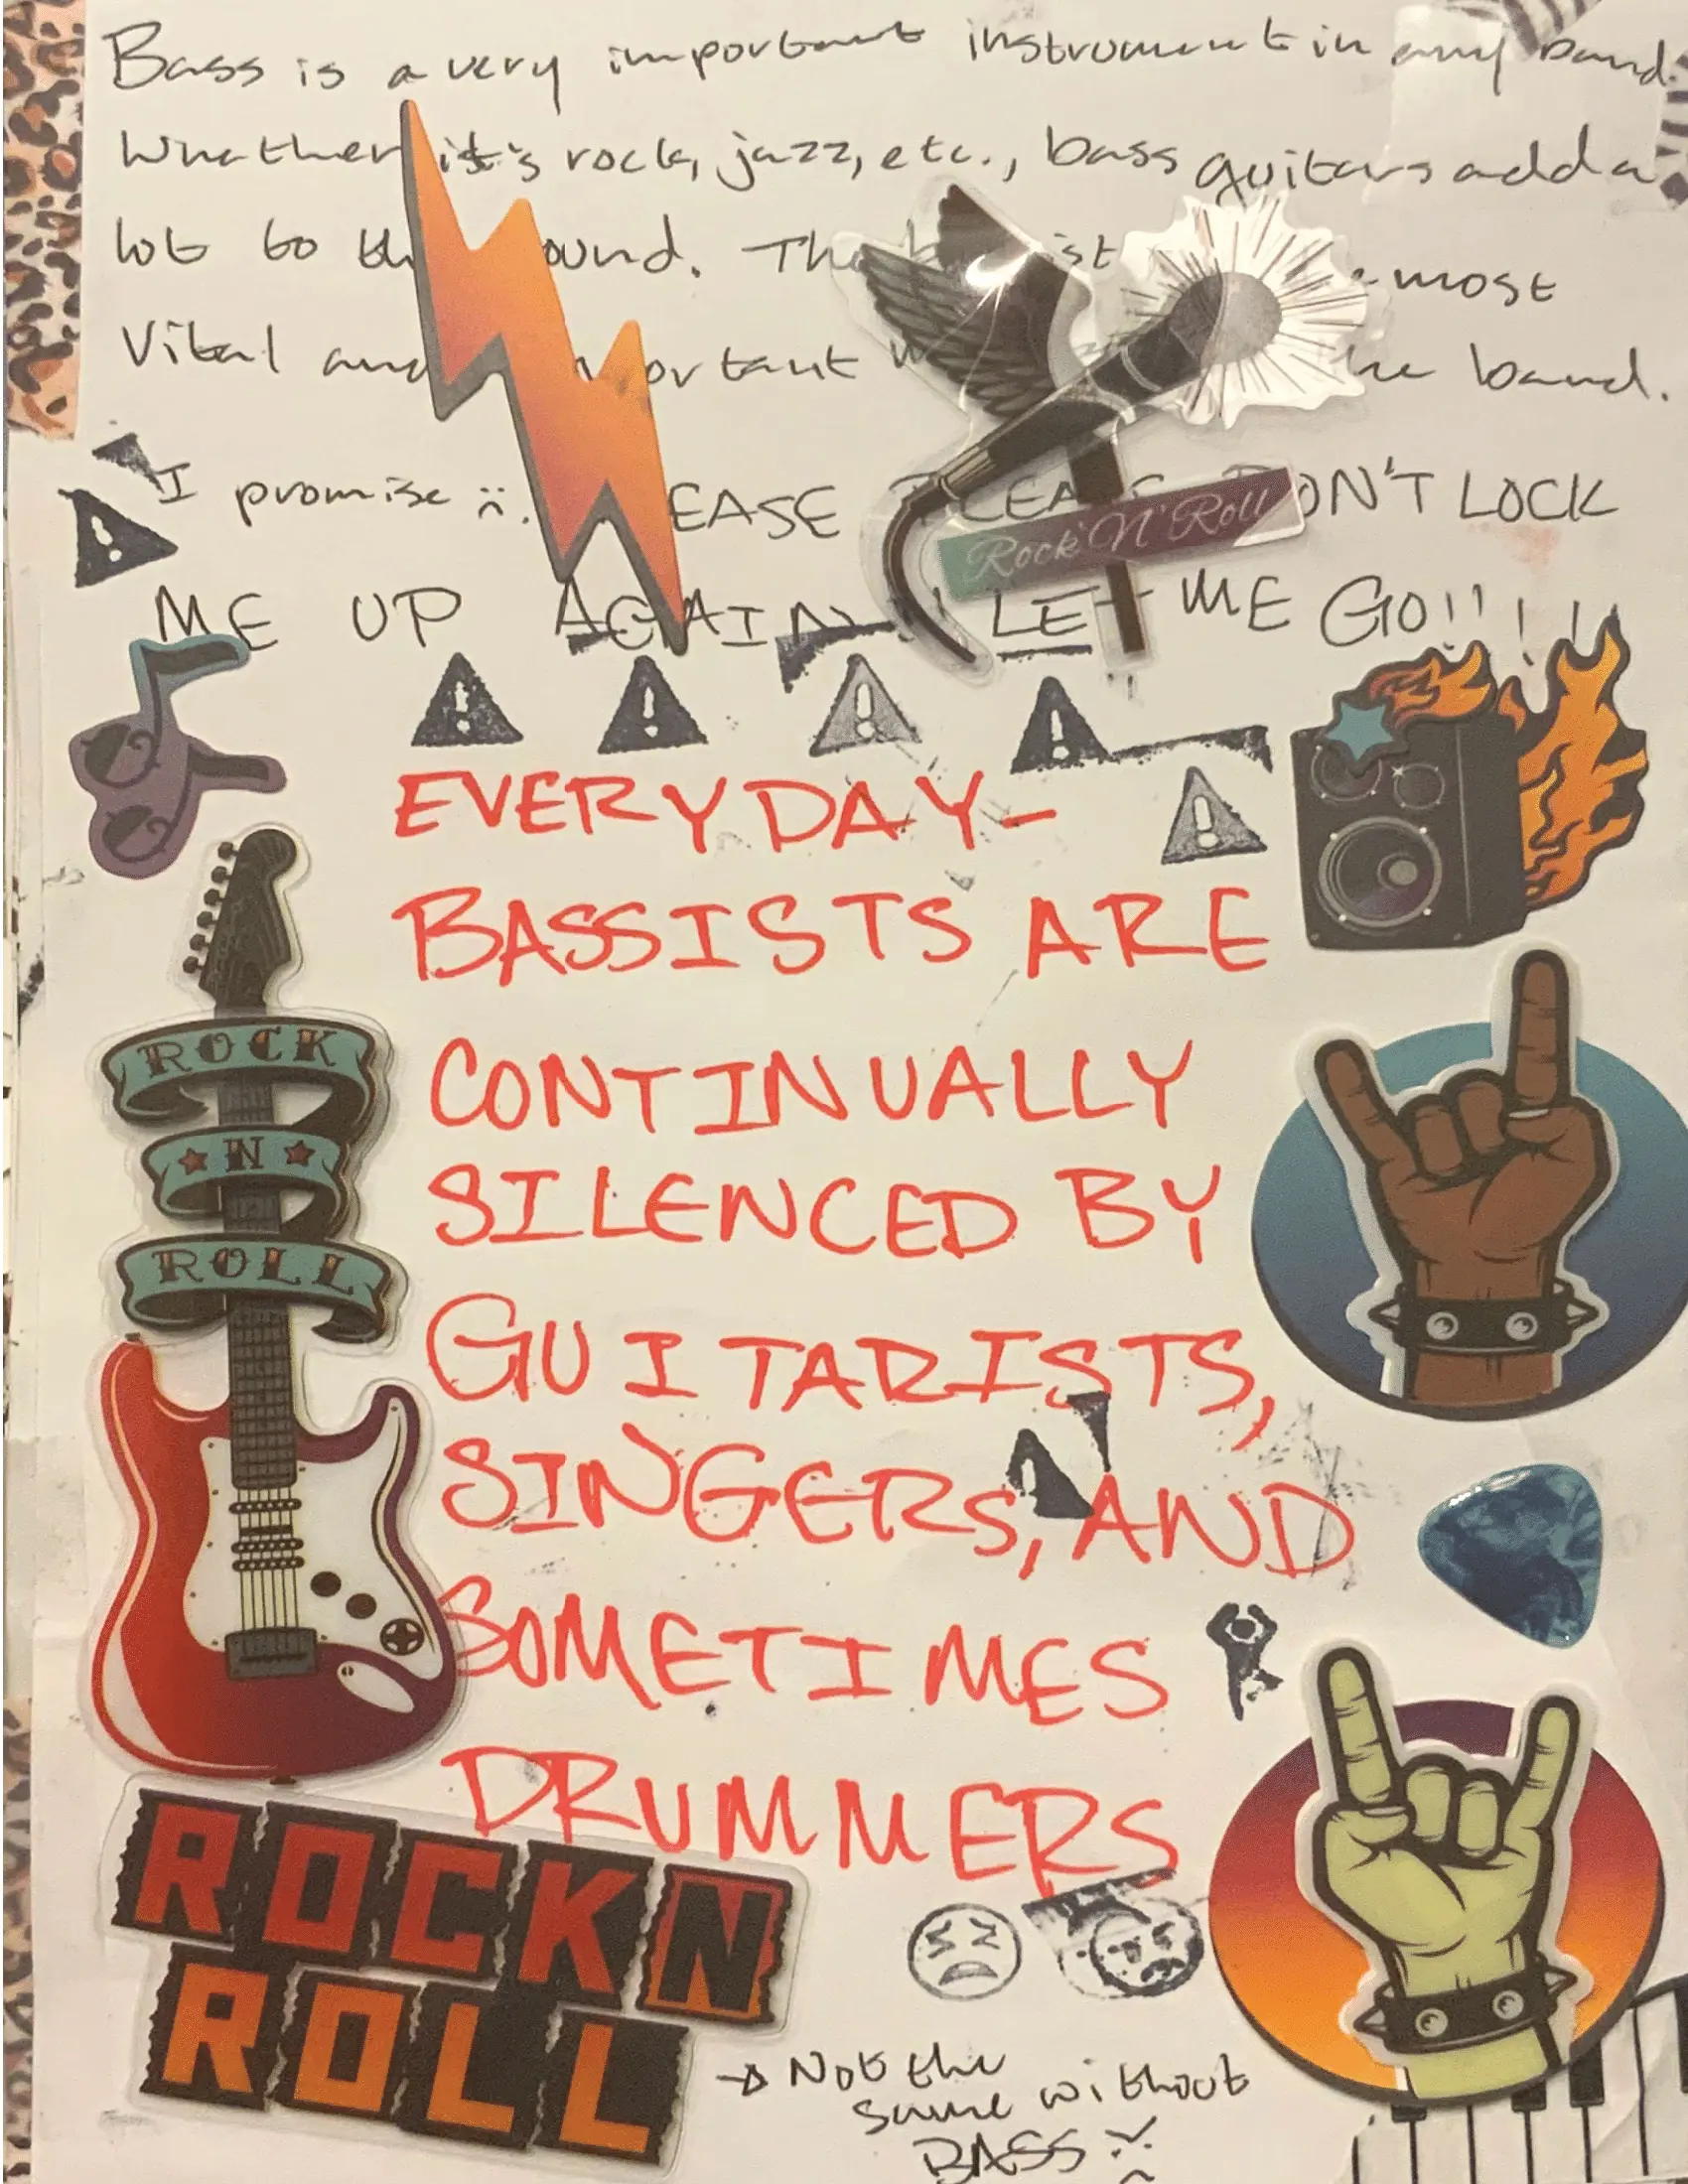 Bass is a very important instrument in any band.
Whether it's rock, jazz, etc., bass guitars add a
lot to the sound. The bassist most
vital and important the band.
I promise :(. PLEASE PLEASE DON'T LOCK
ME UP AGAIN LET ME GO!!!!
Rock'N'Roll
EVERYDAY-
BASSISTS ARE
CONTINUALLY
SILENCED BY
GUITARISTS,
SINGERS, AND
SOMETIMES
DRUMMERS
ROCK
N
ROLL
ROCKN
ROLL
→ Not the
same without
BASS :(